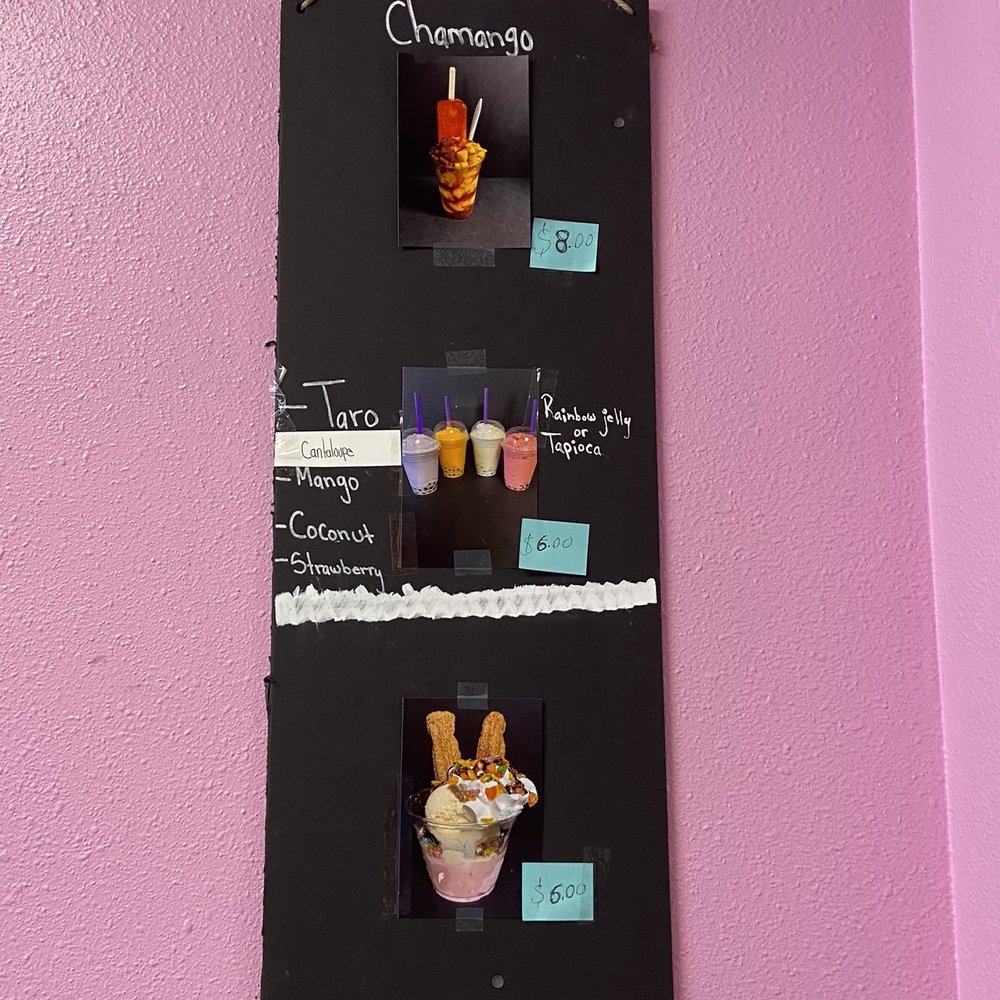 Chamango
$8.00
- Taro
Cantaloupe
- Mango
- Coconut
- Strawberry
Rainbow jelly
or
Tapioca
$6.00
$6.00